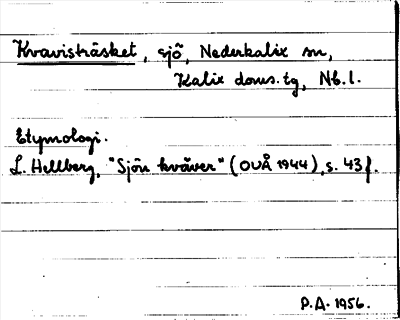 Kvavisträsket, sjö, Nederkalix sn,
Kalix doms.tg, Nb.l.
Etymologi.
L. Hellberg, "Sjön kväver" (OUÅ 1944), s. 43 f.
P.A. 1956.